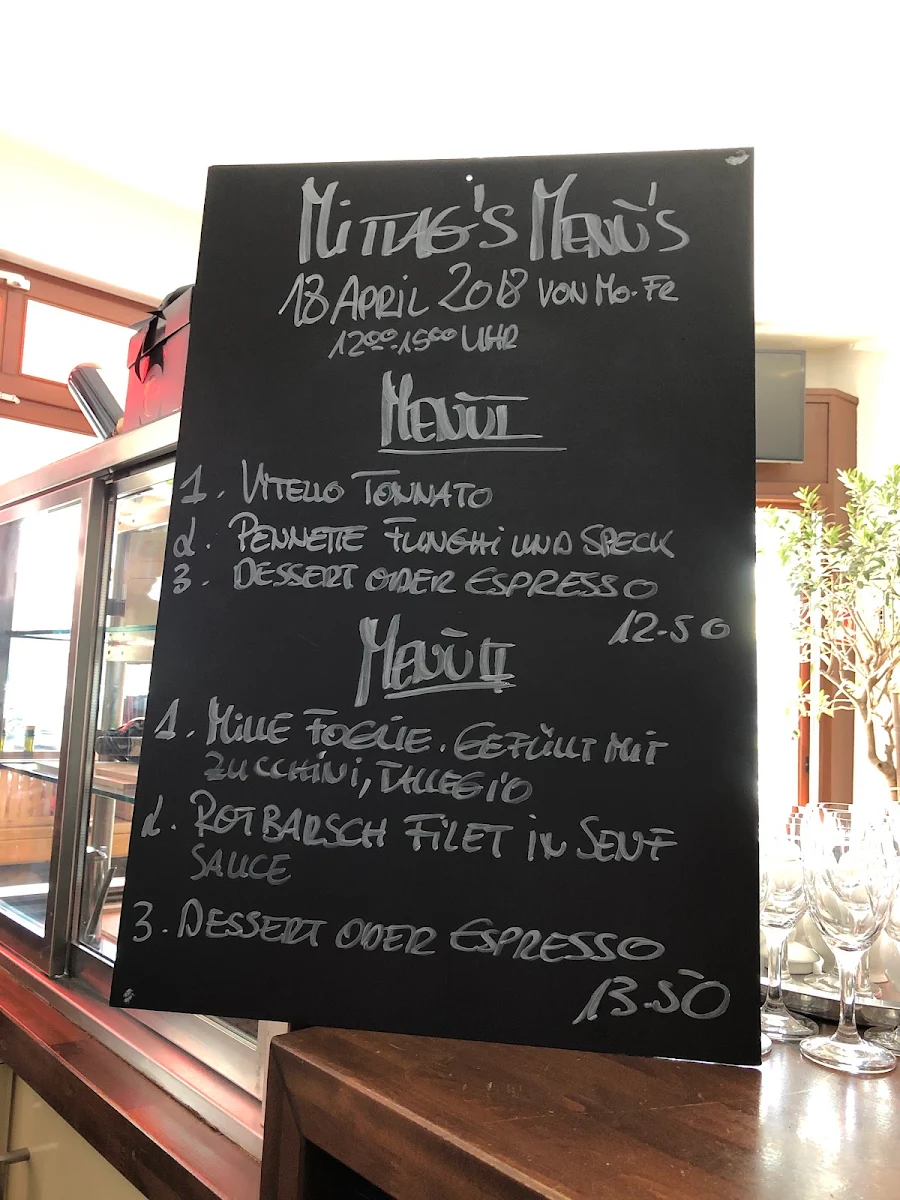 MITTAG'S MENÙ'S
18 APRIL 2018 VON MO-FR
12⁰⁰-15⁰⁰ UHR
MENÙ I
1. VITELLO TONNATO
2. PENNETTE FUNGHI UND SPECK
3. DESSERT ODER ESPRESSO
12-50
MENÙ II
1. MILLE FOGLIE. GEFÜLLT MIT
ZUCCHINI, TALLEGIO
2. ROTBARSCH FILET IN SENF
SAUCE
3. DESSERT ODER ESPRESSO
13-50